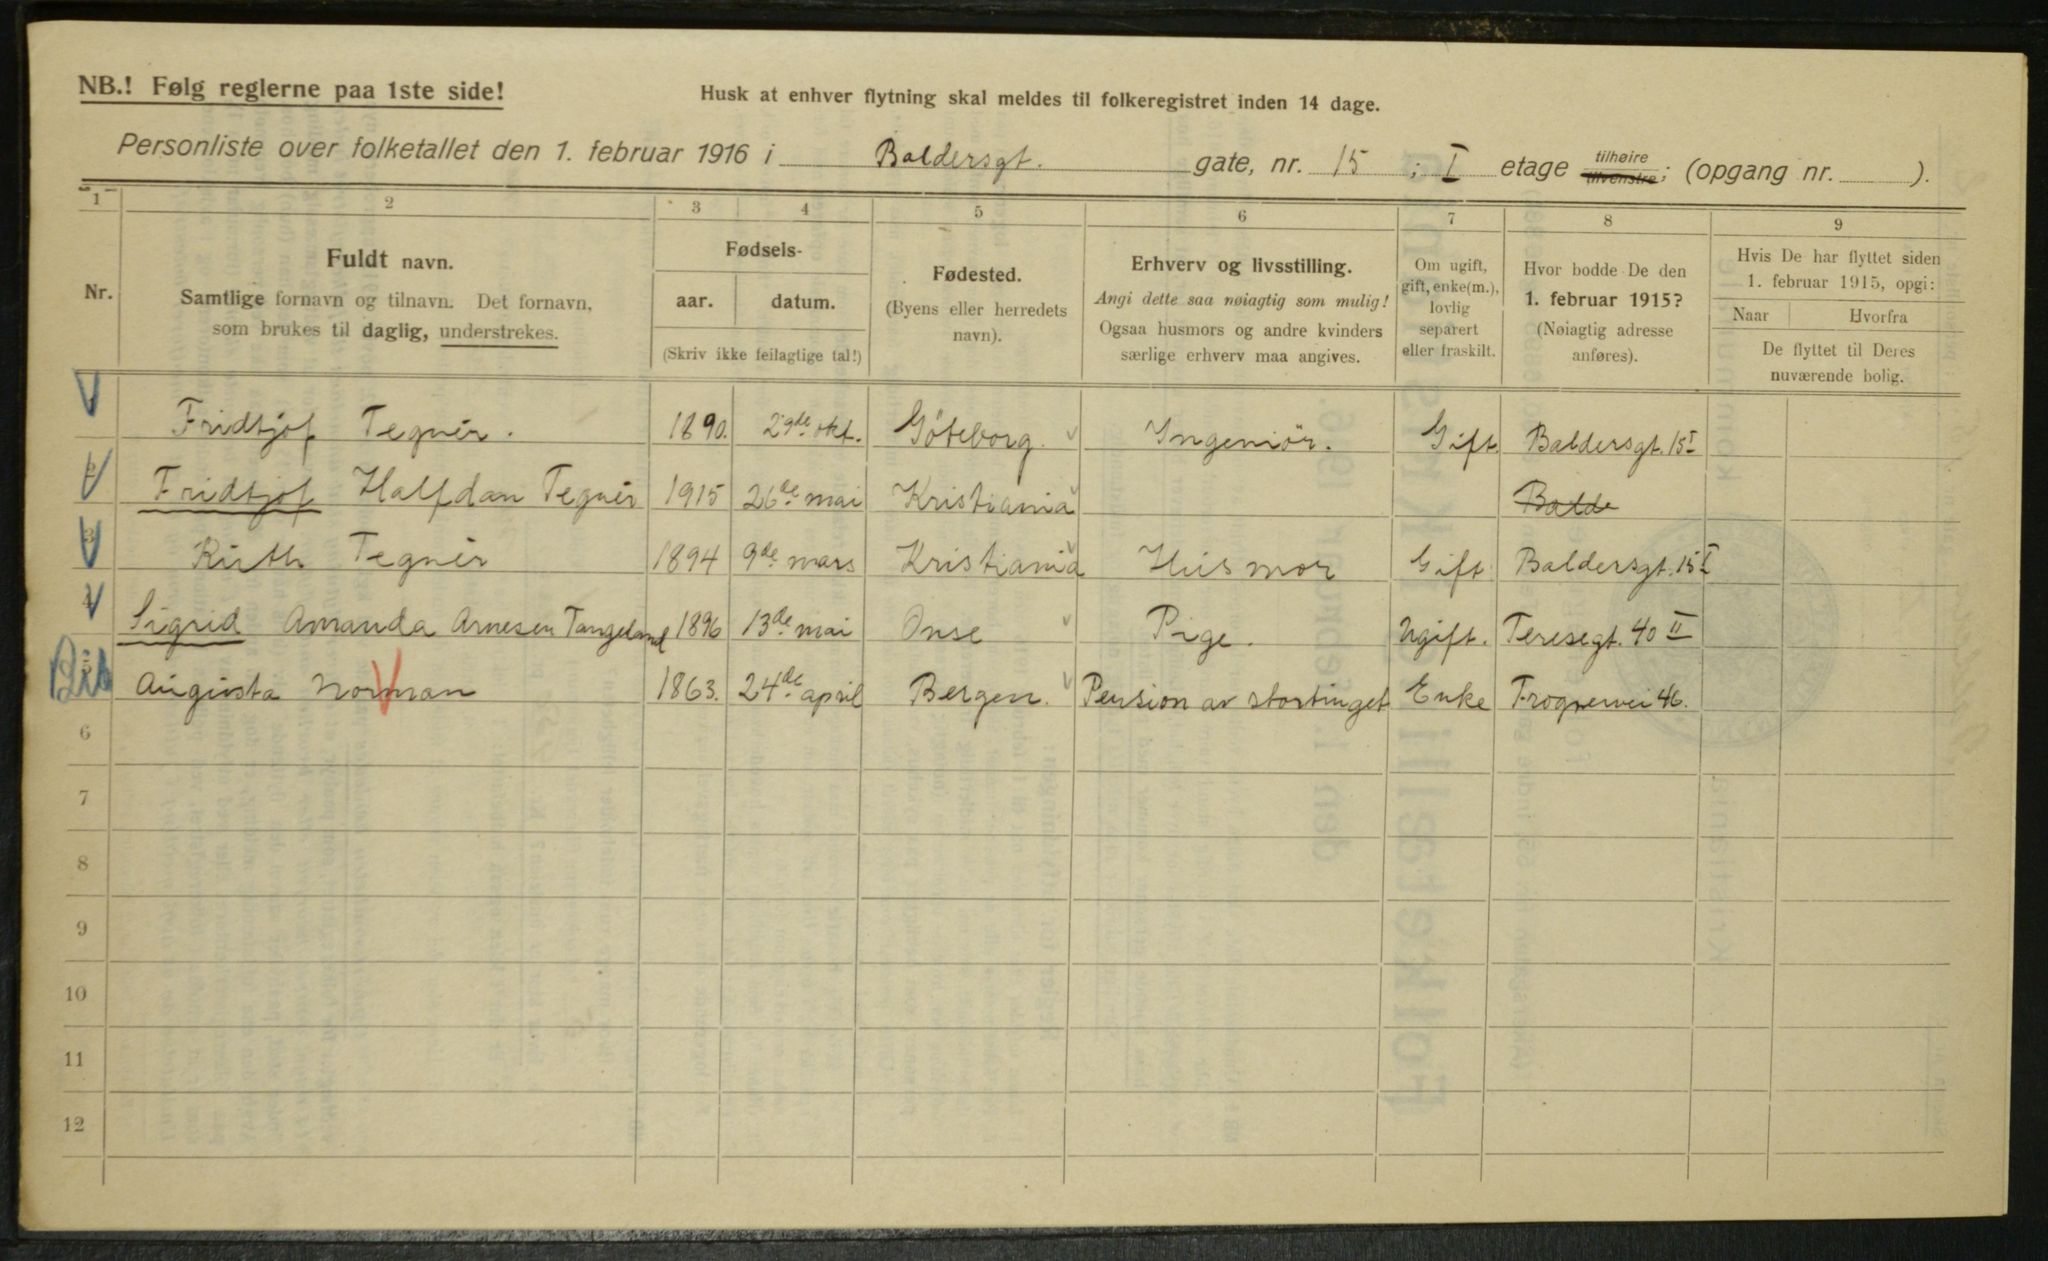 NB.! Følg reglerne paa 1ste side!
Husk at enhver flytning skal meldes til folkeregistret inden 14 dage.
Personliste over folketallet den 1. februar 1916 i Baldersgt. gate, nr. 15 ; I etage tilhøire tilvenstre; (opgang nr. ).
1 2 3 4 5 6 7 8 9
Nr.
Fuldt navn.
Samtlige fornavn og tilnavn. Det fornavn,
som brukes til daglig, understrekes.
Fødsels-
aar. datum.
(Skriv ikke feilagtige tal!)
Fødested.
(Byens eller herredets
navn).
Erhverv og livsstilling.
Angi dette saa nøiagtig som mulig!
Ogsaa husmors og andre kvinders
særlige erhverv maa angives.
Om ugift,
gift, enke(m.),
lovlig
separert
eller fraskilt.
Hvor bodde De den
1. februar 1915?
(Nøiagtig adresse
anføres).
Hvis De har flyttet siden
1. februar 1915, opgi:
Naar Hvorfra
De flyttet til Deres
nuværende bolig.
Fridtjof Tegnér. 1890. 29de okt. Göteborg. Ingeniör. Gift Baldersgt. 15 I
2 Fridtjof Halfdan Tegnér 1915 26de mai Kristiania Balde
3 Ruth Tegnér 1894 9de mars Kristiania Husmor Gift Baldersgt. 15 I
4 Sigrid Amanda Arnesen Tangeland 1896 13de mai Onse Pige. Ugift. Teresegt. 40 II
5 Augusta Norman 1863. 24de april Bergen. Pension av stortinget Enke Frognervei 46.
6
7
8
9
10
11
12